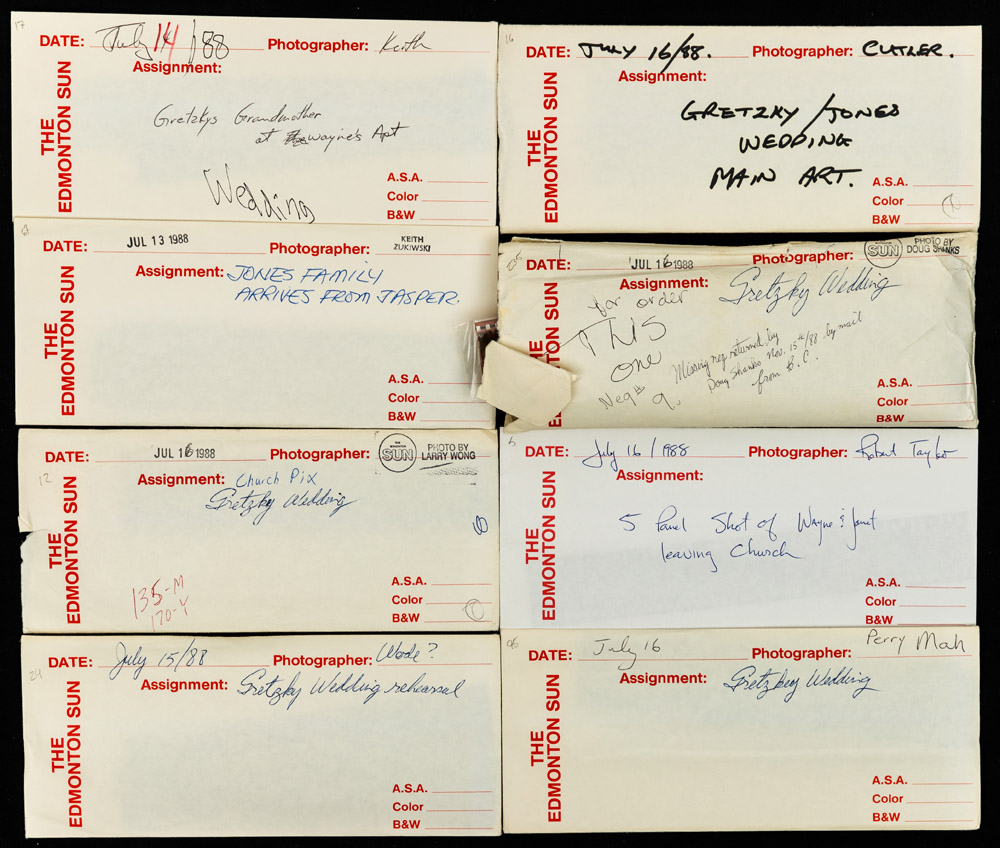 17
DATE: July 14/88 Photographer: Keith
Assignment:
THE
EDMONTON SUN
Gretzkys Grandmother
at Wayne's Apt
Wedding
A.S.A.
Color
B&W
16
DATE: JULY 16/88. Photographer: CUTLER.
Assignment:
THE
EDMONTON SUN
GRETZKY/JONES
WEDDING
MAIN ART.
A.S.A.
Color
B&W
DATE: JUL 13 1988 Photographer: KEITH
ZUKIWSKI
Assignment: JONES FAMILY
ARRIVES FROM JASPER.
THE
EDMONTON SUN
A.S.A.
Color
B&W
235
DATE: JUL 16 1988 Photographer: SUN PHOTO BY
DOUG SHANKS
Assignment: Gretzky Wedding
THE
EDMONTON SUN
for order
THIS
one
Neg#
9.
Missing neg returned by
Doug Shanks Nov. 15th/88 by mail
from B.C.
A.S.A.
Color
B&W
12
DATE: JUL 16 1988 THE EDMONTON SUN PHOTO BY
LARRY WONG
Assignment: Church Pix
Gretzky Wedding
THE
EDMONTON SUN
135-M
170-Y
A.S.A.
Color
B&W
5
DATE: July 16/1988 Photographer: Robert Taylor
Assignment:
THE
EDMONTON SUN
5 Panel Shot of Wayne & Janet
leaving Church
A.S.A.
Color
B&W
24
DATE: July 15/88 Photographer: Wade?
Assignment: Gretzky Wedding rehearsal
THE
EDMONTON SUN
A.S.A.
Color
B&W
DATE: July 16 Photographer: Perry Mah
Assignment: Gretzkey Wedding
THE
EDMONTON SUN
A.S.A.
Color
B&W